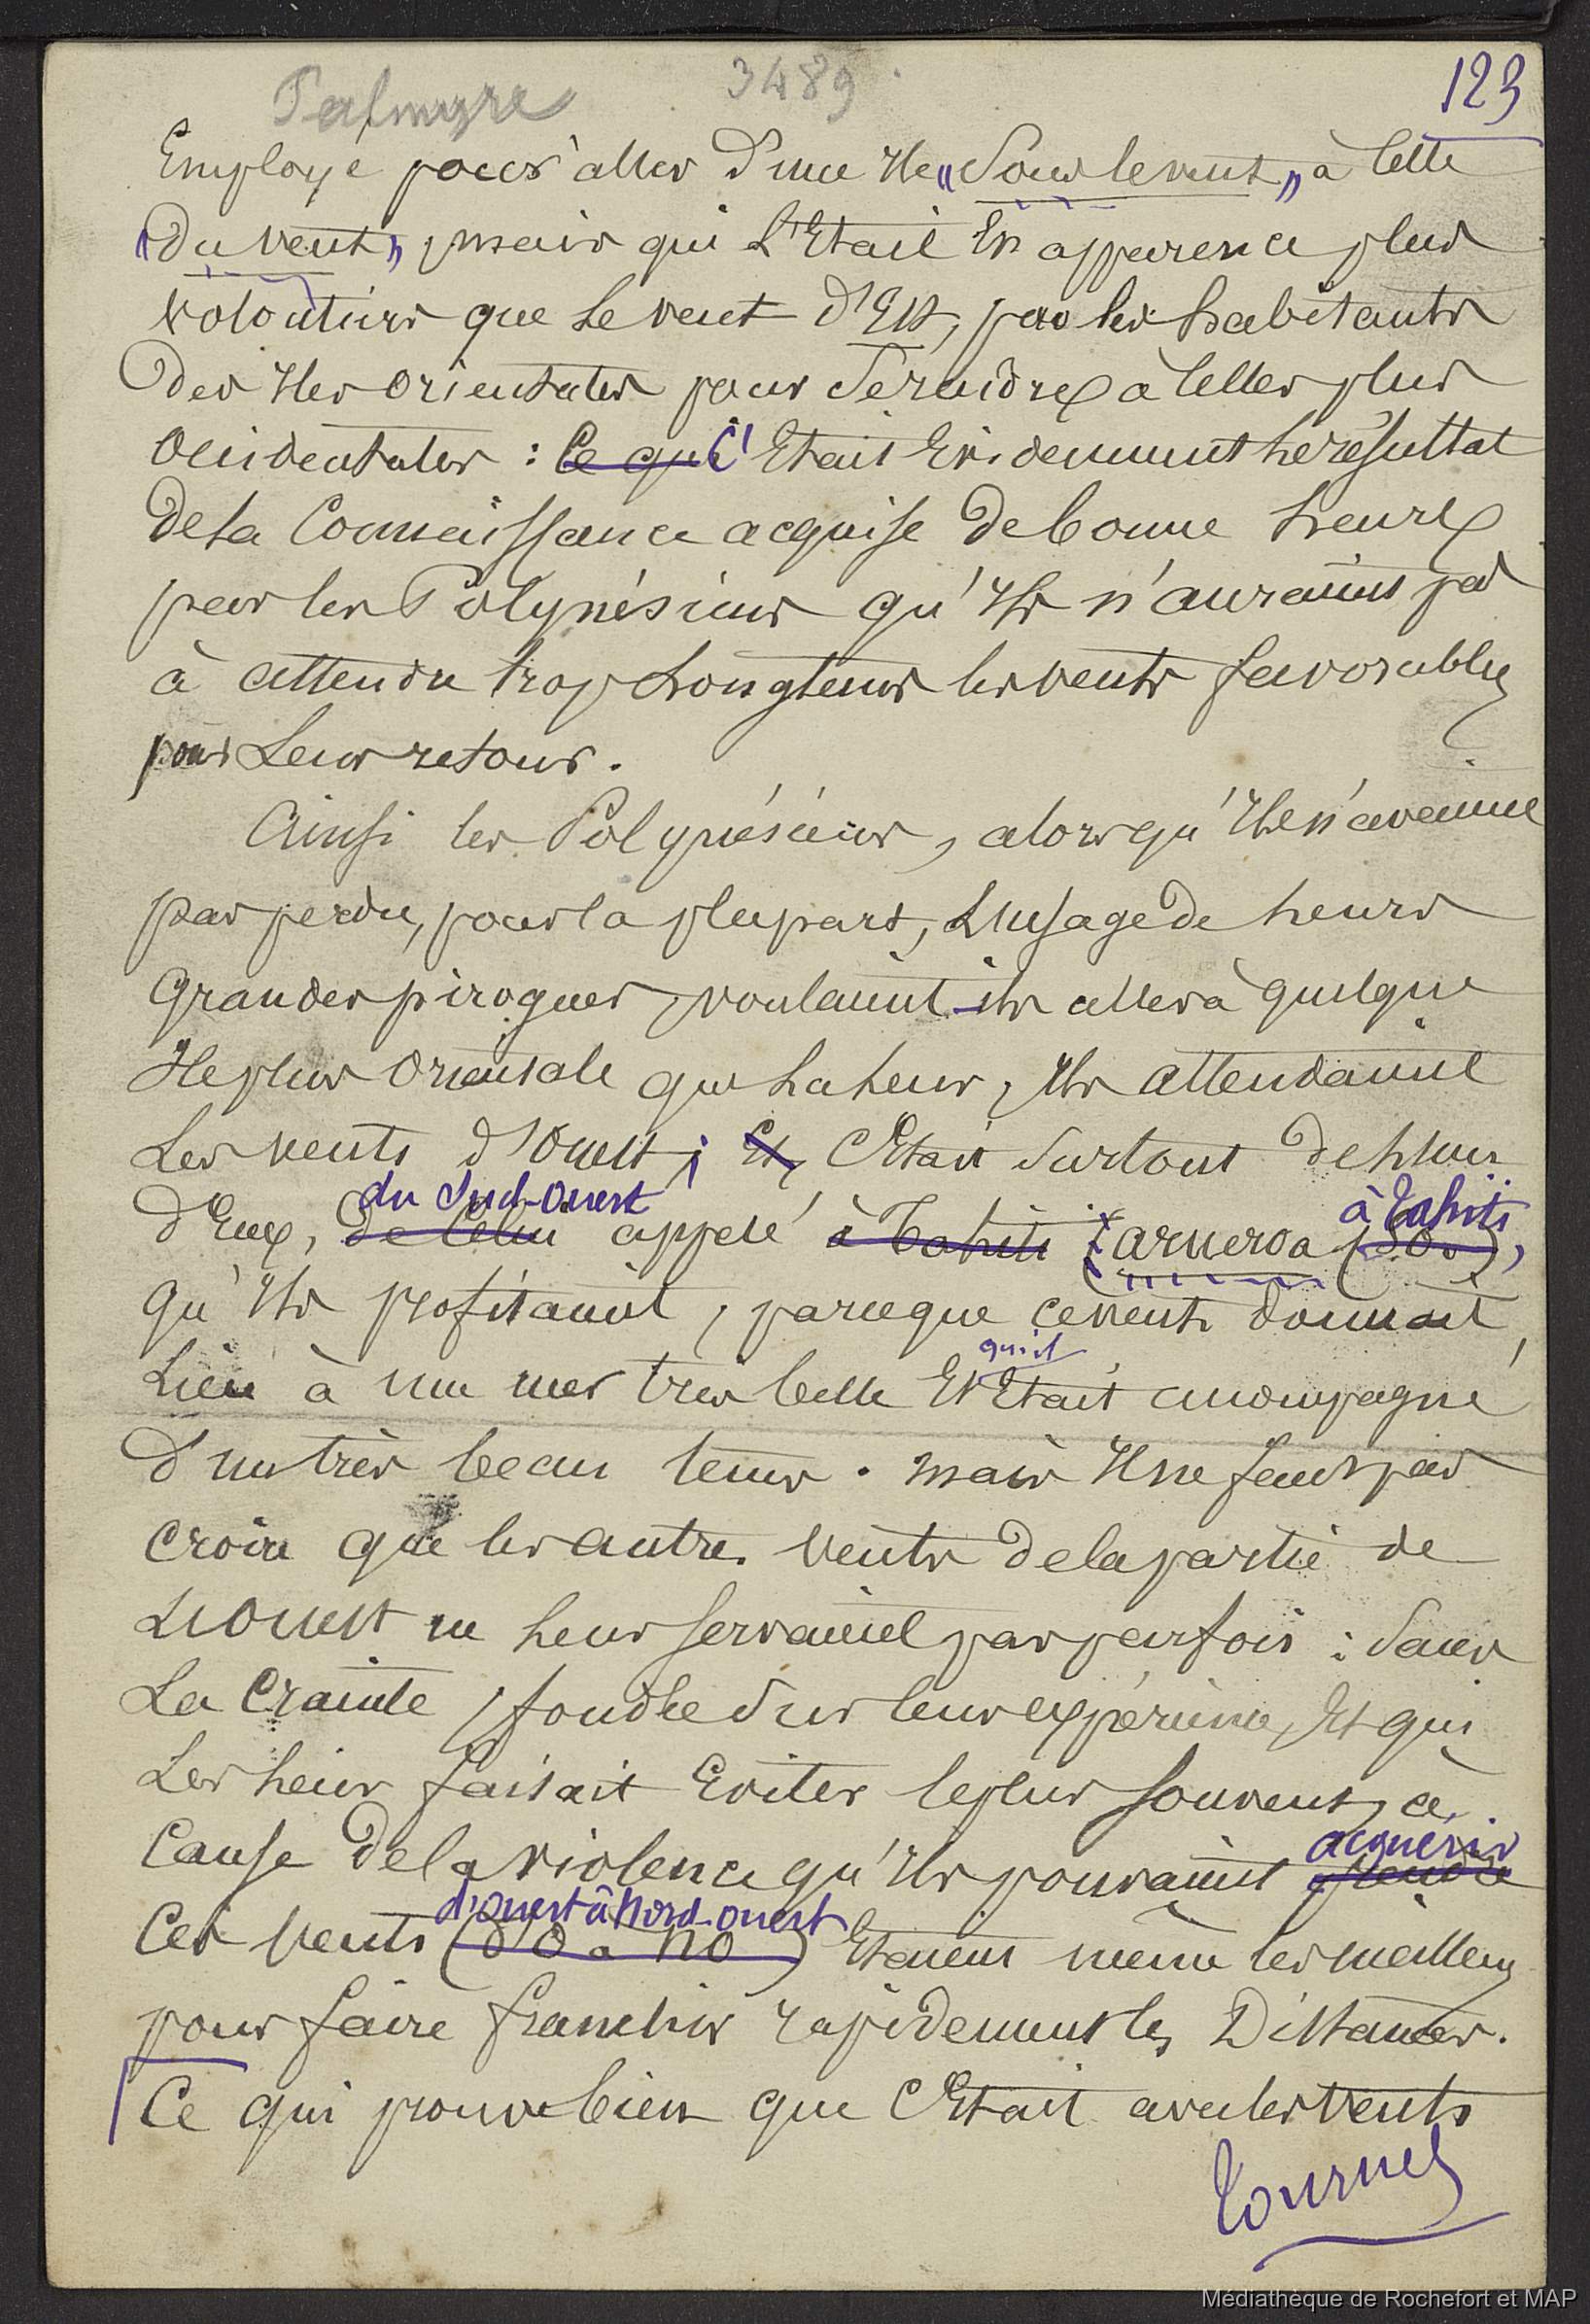 Palmyre 3489 123
Employé pour aller d'une Ile "Sous le vent" à celle
"du vent", mais qui l'Etait En apparence plus
volontiers que le vent d'Est, par les habitants
des Iles orientales pour se rendre à celles plus
occidentales : Ce qui C'Etait Evidemment le résultat
de la Connaissance acquise de bonne heure
par les Polynésiens qu'Ils n'auraient pas
à attendre trop longtems les vents favorables
pour Leur retour.
Ainsi les Polynésiens, alors qu'Ils n'avaient
pas perdu, pour la plupart, L'usage de leurs
Grandes pirogues, voulaient-ils aller à quelque
Ile plus Orientale que la leur, Ils attendaient
Les vents d'Ouest ; Et, C'Etait surtout de l'un
du Sud-Ouest à Tahiti
d'Eux, de Celui appelé à Tahiti (arueroa (SO.),
qu'Ils profitaient, parceque ce vent donnait
qu'il
Lieu à une mer très belle Et Etait accompagné
d'un très beau tems. mais Il ne faut pas
Croire que les autres vents de la partie de
L'Ouest ne leur servaient pas parfois : Sauf
La Crainte, fondée sur leur expérience, Et qui
Les leur faisait Eviter le plus souvent, à
acquérir
Cause de la violence qu'Ils pouvaient prendre
d'Ouest à Nord-ouest
Ces vents (d'O à NO) Etaient même les meilleurs
pour faire franchir rapidement les Distances.
Ce qui prouve bien que C'Etait avec les vents
Tournez
Médiathèque de Rochefort et MAP